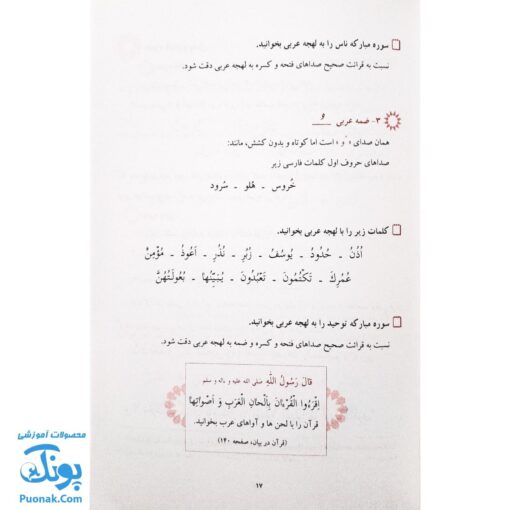 سوره مبارکه ناس را به لهجه عربی بخوانید.
نسبت به قرائت صحیح صداهای فتحه و کسره به لهجه عربی دقت شود.
۳- ضمه عربی ـُـ
همان صدای « و » است اما کوتاه و بدون کشش، مانند:
صداهای حروف اول کلمات فارسی زیر
خُروس ـ هُلو ـ سُرود
کلمات زیر را با لهجه عربی بخوانید.
اُذُنُ ـ حُدُودُ ـ یُوسُفُ ـ زُبُرِ ـ نُذُرِ ـ اَعُوذُ ـ مُؤْمِنٌ
عُمُرِكَ ـ تَکْتُمُونَ ـ تَعْبُدُونَ ـ یُبَیِّنُها ـ بُعُولَتُهُنَّ
سوره مبارکه توحید را به لهجه عربی بخوانید.
نسبت به قرائت صحیح صداهای فتحه و کسره و ضمه به لهجه عربی دقت شود.
قالَ رَسُولُ اللّٰهِ صلی الله علیه و ءاله و سلم
اِقْرَءُوا الْقُرْءانَ بِاَلْحانِ الْعَرَبِ وَ اَصْواتِها
قرآن را با لحن ها و آواهای عرب بخوانید.
(قرآن در بیان، صفحه ۱۴۰)
۱۷
محصولات آموزشی
پونک
Puonak.Com